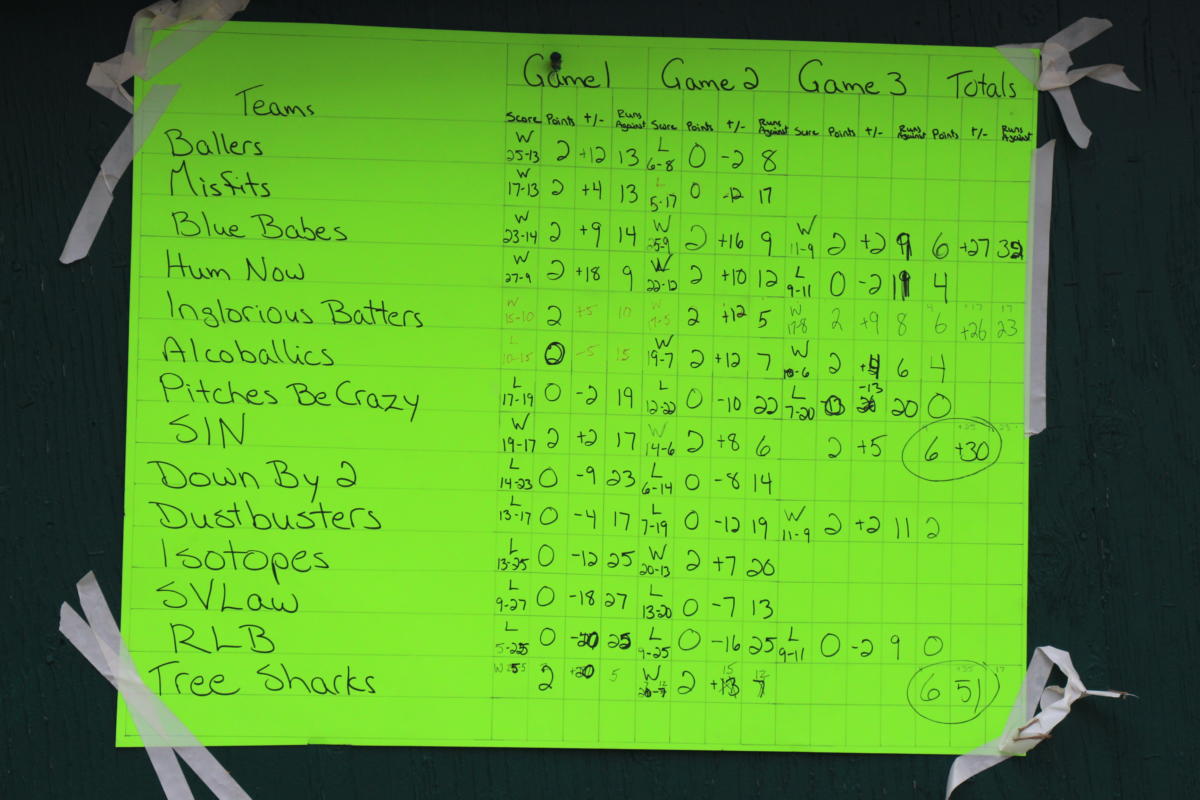 Game 1 Game 2 Game 3 Totals
Teams Score Points +/- Runs Against Score Points +/- Runs Against Score Points +/- Runs Against Points +/- Runs Against
Ballers W 25-13 2 +12 13 L 6-8 0 -2 8
Misfits W 17-13 2 +4 13 L 5-17 0 -12 17
Blue Babes W 23-14 2 +9 14 W 25-9 2 +16 9 W 11-9 2 +2 9 6 +27 32
Hum Now W 27-9 2 +18 9 W 22-12 2 +10 12 L 9-11 0 -2 11 4
Inglorious Batters W 15-10 2 +5 10 W 17-5 2 +12 5 W 17-8 2 +9 8 6 +26 23
Alcoballics L 10-15 2 -5 15 W 19-7 2 +12 7 W 10-6 2 +4 6 4
Pitches Be Crazy L 17-19 0 -2 19 L 12-22 0 -10 22 L 7-20 0 -13 20 0
SIN W 19-17 2 +2 17 W 14-6 2 +8 6 2 +5 6 +30
Down By 2 L 14-23 0 -9 23 L 6-14 0 -8 14
Dustbusters L 13-17 0 -4 17 L 7-19 0 -12 19 W 11-9 2 +2 11 2
Isotopes L 13-25 0 -12 25 W 20-13 2 +7 20
SVLaw L 9-27 0 -18 27 L 13-20 0 -7 13
RLB L 5-25 0 -20 25 L 9-25 0 -16 25 L 9-11 0 -2 9 0
Tree Sharks W 5 2 +20 5 W 2 6 51